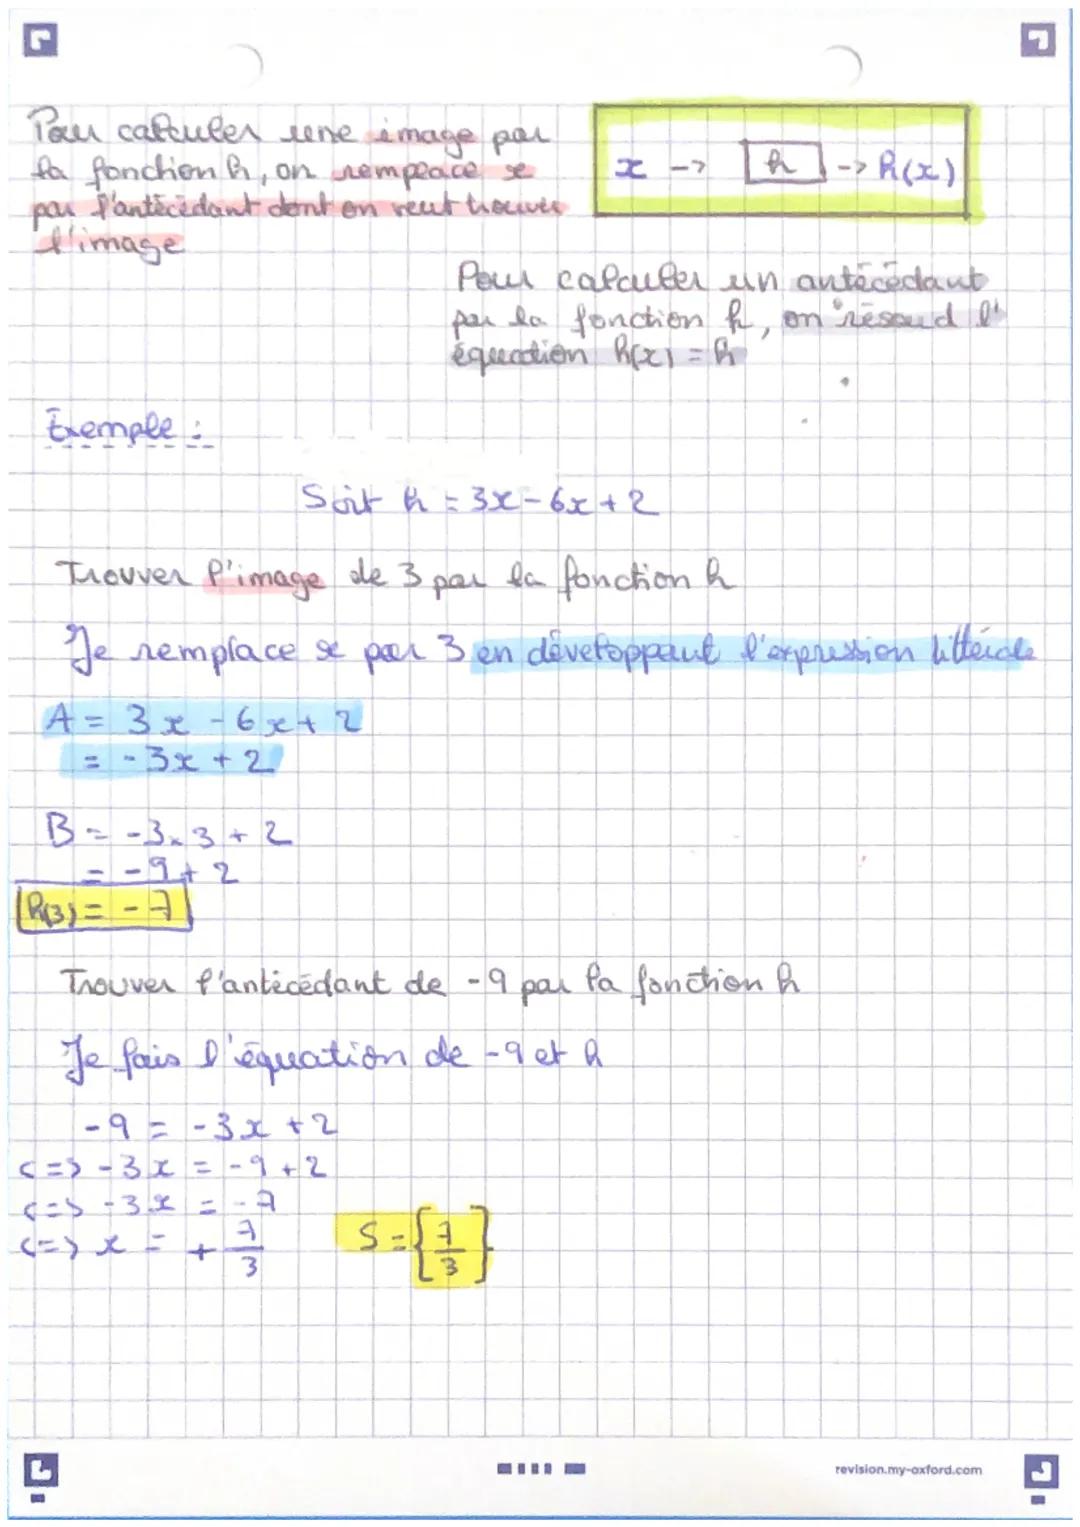 Pour calculer une image par
la fonction h, on remplace x
par l'antécédant dont on veut trouver
l'image
x -> h -> h(x)
Pour calculer un antécédant
par la fonction h, on résoud l'
équation h(x) = h
Exemple :
Soit h = 3x - 6x + 2
Trouver l'image de 3 par la fonction h
Je remplace x par 3 en développant l'expression littérale
A = 3x - 6x + 2
= -3x + 2
B = -3 × 3 + 2
= -9 + 2
h(3) = -7
Trouver l'antécédant de -9 par la fonction h
Je fais l'équation de -9 et h
-9 = -3x + 2
<=> -3x = -9 + 2
<=> -3x = -7
<=> x = + 7/3
S = {7/3}
revision.my-oxford.com